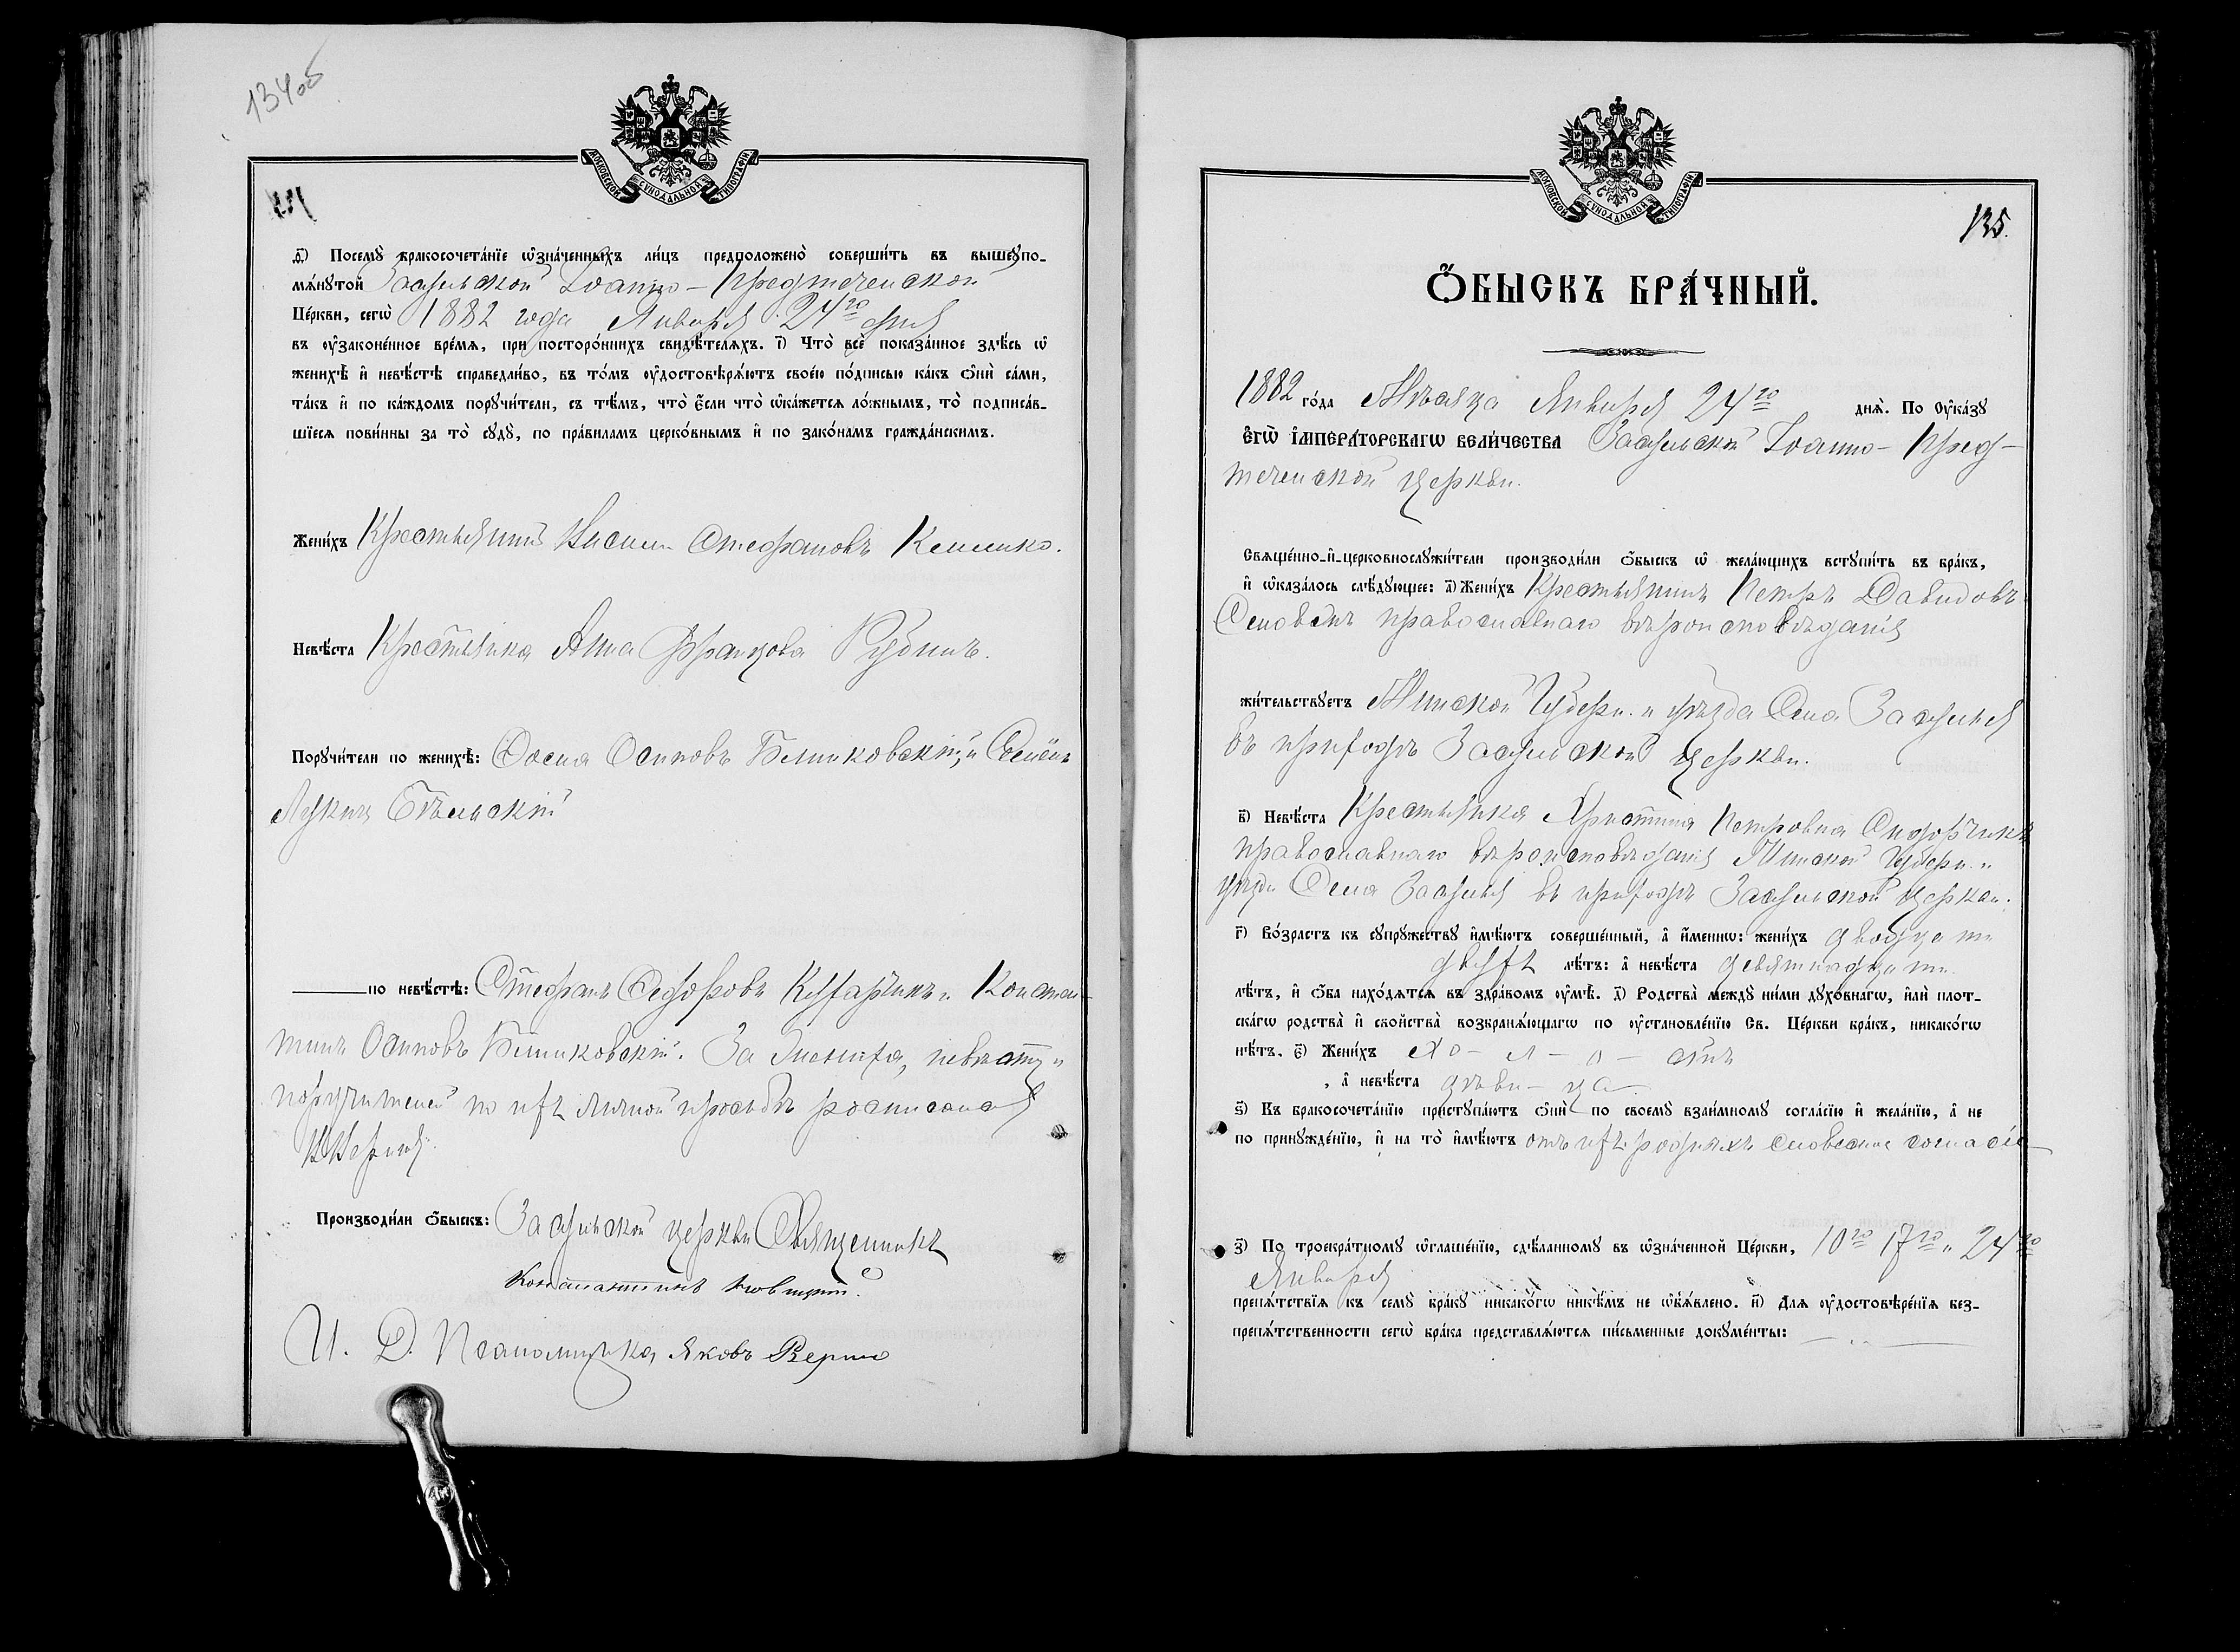 134об
МОСКОВСКОЙ СѴНОДАЛЬНОЙ ТИПОГРАФІИ
ѳ҃) Посемꙋ̀ бракосочета́нїе ѡ҆зна́ченныхъ ли́цъ предположено̀ соверши́ть въ вышеꙋпо-
мѧ́нꙋтой Засульской Іоанно-Предтеченской
Це́ркви, сегѡ̀ 1882 года Января 24го дня
въ ᲂу҆законе́нное вре́мѧ, при посторо́ннихъ свидѣ́телѧхъ. і҃) Что̀ всѐ показа́нное здѣ́сь ѡ҆
женихѣ̀ и҆ невѣ́стѣ справедли́во, въ то́мъ ᲂу҆достовѣрѧ́ютъ свое́ю по́дписью ка́къ ѻ҆нѝ са́ми,
та́къ и҆ по ка́ждомъ порꙋчи́тели, съ тѣ́мъ, что̀ є҆́сли что̀ ѡ҆ка́жетсѧ ло́жнымъ, то̀ подписа́в-
шїесѧ пови́нны за то̀ сꙋдꙋ̀, по пра́виламъ церко́внымъ и҆ по зако́намъ гражда́нскимъ.
Жени́хъ Крестьянинъ Стефановъ
Невѣ́ста Крестьянка Анна Францова Рубинъ.
Порꙋчи́тели по женихѣ̀: Осиповъ и Семенъ
Лукинъ Бѣльскій
по невѣ́стѣ: Стефанъ Сидоровъ Кухарчикъ и Констан-
тинъ Осиповъ За жениха, невѣсту и
поручителей по ихъ личной просьбѣ росписался
Производи́ли ѻ҆́быскъ: Засульской церкви Священникъ
Константинъ
И. Д. Псаломщика Яковъ Верниг
МОСКОВСКОЙ СѴНОДАЛЬНОЙ ТИПОГРАФІИ
135.
Ѻ҆́БЫСКЪ БРА́ЧНЫЙ.
1882 го́да Мѣсяца Января 24го днѧ̀. По ᲂу҆ка́зꙋ
Є҆ГѠ̀ И҆МПЕРА́ТОРСКАГѠ ВЕЛИ́ЧЕСТВА Засульской Іоанно-Пред-
теченской церкви.
Свѧще́нно-и҆-церковнослꙋжи́тели производи́ли ѻ҆́быскъ ѡ҆ жела́ющихъ встꙋпи́ть въ бра́къ,
и҆ ѡ҆каза́лось слѣ́дꙋющее: а҃) Жени́хъ Крестьянинъ Петръ Давидовъ
православнаго вѣроисповѣданія
жи́тельствꙋетъ Минской Губерн. и уѣзда Села Засулья
въ приходѣ Засульской церкви.
в҃) Невѣ́ста Крестьянка Христина Петровна Сидорчикъ
православнаго вѣроисповѣданія Минской Губерн. и
уѣзда Села Засулья въ приходѣ Засульской церкви.
г҃) Во́зрастъ къ сꙋпрꙋ́жествꙋ и҆мѣ́ютъ соверше́нный, а҆ и҆́меннѡ: жени́хъ двадцати
двухъ лѣ́тъ: а҆ невѣ́ста девятнадцати
лѣ́тъ, и҆ ѻ҆́ба нахо́дѧтсѧ въ здра́вомъ ᲂу҆мѣ̀. д҃) Родства̀ междꙋ̀ ни́ми дꙋхо́внагѡ, и҆лѝ плот-
ска́гѡ родства̀ и҆ свойства̀ возбранѧ́ющагѡ по ᲂу҆становле́нїю Св. Це́ркви бра́къ, никако́гѡ
нѣ́тъ. є҃) Жени́хъ хо - л - о - стъ
, а҆ невѣ́ста дѣви - ца -
ѕ҃) Къ бракосочета́нїю пристꙋпа́ютъ ѻ҆нѝ по своемꙋ̀ взаи́мномꙋ согла́сїю и҆ жела́нїю, а҆ не
по принꙋжде́нїю, и҆ на то̀ и҆мѣ́ютъ отъ ихъ родныхъ словесное согласіе
з҃) По троекра́тномꙋ ѡ҆глаше́нїю, сдѣ́ланномꙋ въ ѡ҆зна́ченной Це́ркви, 10го 17го и 24го
Января
препѧ́тствїѧ къ семꙋ̀ бра́кꙋ никако́гѡ никѣ́мъ не ѡ҆б̾ѧ́влено. и҃) Длѧ ᲂу҆достовѣре́нїѧ без-
препѧ́тственности сегѡ̀ бра́ка представлѧ́ютсѧ пи́сьменные докꙋме́нты: